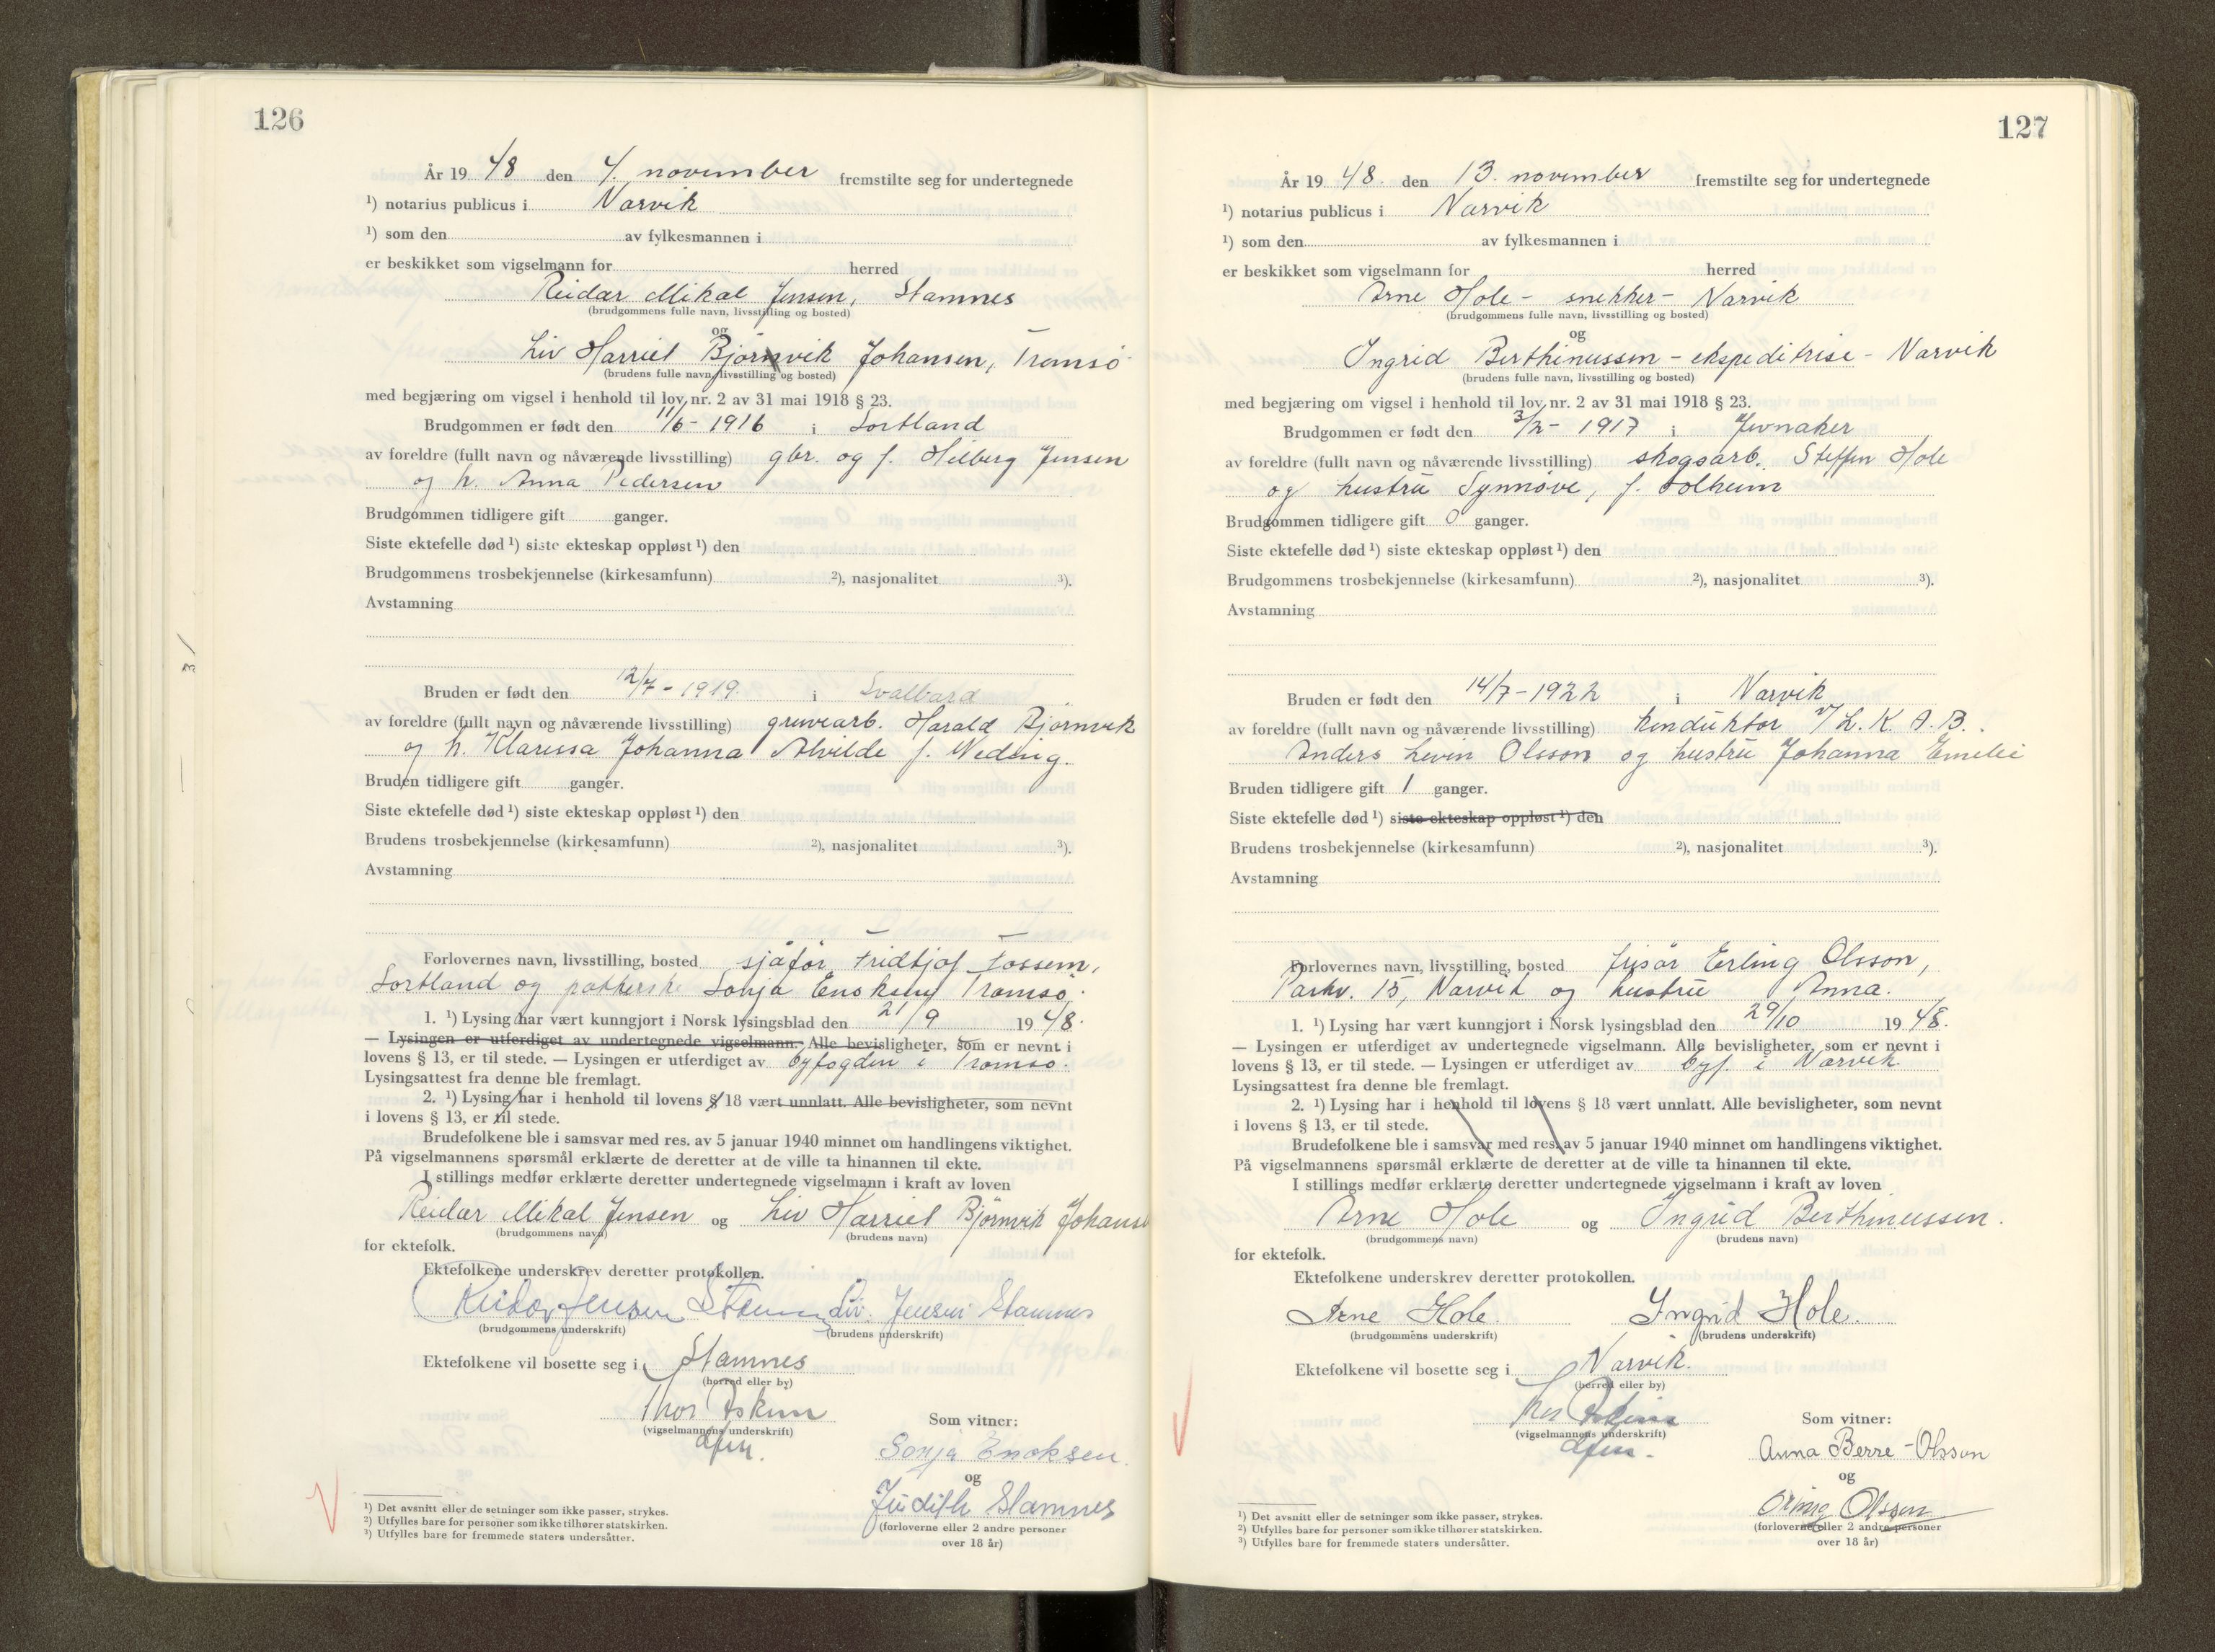 126
År 19 48 den 4. november fremstilte seg for undertegnede
¹) notarius publicus i Narvik
¹) som den av fylkesmannen i
er beskikket som vigselmann for herred
Reidar Mikal Jensen, Stamnes
(brudgommens fulle navn, livsstilling og bosted)
og
Liv Harriet Bjørnvik Johansen, Tromsø
(brudens fulle navn, livsstilling og bosted)
med begjæring om vigsel i henhold til lov nr. 2 av 31 mai 1918 § 23.
Brudgommen er født den 11/6 - 1916 i Sortland
av foreldre (fullt navn og nåværende livsstilling) gbr. og f. Hilberg Jensen
og h. Anna Pedersen
Brudgommen tidligere gift ganger.
Siste ektefelle død ¹) siste ekteskap oppløst ¹) den
Brudgommens trosbekjennelse (kirkesamfunn) ²), nasjonalitet ³).
Avstamning
Bruden er født den 12/7 - 1919. i Svalbard
av foreldre (fullt navn og nåværende livsstilling) gruvearb. Harald Bjørnvik
og h. Klarissa Johanna Alvilde f.
Bruden tidligere gift ganger.
Siste ektefelle død ¹) siste ekteskap oppløst ¹) den
Brudens trosbekjennelse (kirkesamfunn) ²), nasjonalitet ³).
Avstamning
Forlovernes navn, livsstilling, bosted sjåfør Fridtjof Fossem,
Sortland og pakkerske Sonja Enoksen Tromsø.
1. ¹) Lysing har vært kunngjort i Norsk lysingsblad den 21/9 19 48.
— Lysingen er utferdiget av undertegnede vigselmann. Alle bevisligheter, som er nevnt i
lovens § 13, er til stede. — Lysingen er utferdiget av byfogden i Tromsø.
Lysingsattest fra denne ble fremlagt.
2. ¹) Lysing har i henhold til lovens § 18 vært unnlatt. Alle bevisligheter, som nevnt
i lovens § 13, er til stede.
Brudefolkene ble i samsvar med res. av 5 januar 1940 minnet om handlingens viktighet.
På vigselmannens spørsmål erklærte de deretter at de ville ta hinannen til ekte.
I stillings medfør erklærte deretter undertegnede vigselmann i kraft av loven
Reidar Mikal Jensen og Liv Harriet Bjørnvik Johans
(brudgommens navn) (brudens navn)
for ektefolk.
Ektefolkene underskrev deretter protokollen.
Reidar Jensen Liv. Jensen Stamnes
(brudgommens underskrift) (brudens underskrift)
Ektefolkene vil bosette seg i Stamnes
(herred eller by)
Thor Askim
(vigselmannens underskrift)
dfm.
Som vitner:
Sonja Enoksen.
og
Judith Stamnes
(forloverne eller 2 andre personer
over 18 år)
¹) Det avsnitt eller de setninger som ikke passer, strykes.
²) Utfylles bare for personer som ikke tilhører statskirken.
³) Utfylles bare for fremmede staters undersåtter.
127
År 19 48. den 13. november fremstilte seg for undertegnede
¹) notarius publicus i Narvik
¹) som den av fylkesmannen i
er beskikket som vigselmann for herred
Arne Hole - snekker - Narvik
(brudgommens fulle navn, livsstilling og bosted)
og
Ingrid Berthinussen - ekspeditrise - Narvik
(brudens fulle navn, livsstilling og bosted)
med begjæring om vigsel i henhold til lov nr. 2 av 31 mai 1918 § 23.
Brudgommen er født den 3/2 - 1917 i Jevnaker
av foreldre (fullt navn og nåværende livsstilling) skogsarb. Steffen Hole
og hustru Synnøve, f. Solheim
Brudgommen tidligere gift 0 ganger.
Siste ektefelle død ¹) siste ekteskap oppløst ¹) den
Brudgommens trosbekjennelse (kirkesamfunn) ²), nasjonalitet ³).
Avstamning
Bruden er født den 14/7 - 1922 i Narvik
av foreldre (fullt navn og nåværende livsstilling) konduktør v/ L.K.A.B.
Anders Levin Olsson og hustru Johanna Emelie
Bruden tidligere gift 1 ganger.
Siste ektefelle død ¹) siste ekteskap oppløst ¹) den
Brudens trosbekjennelse (kirkesamfunn) ²), nasjonalitet ³).
Avstamning
Forlovernes navn, livsstilling, bosted frisør Erling Olsson,
Parkv. 15, Narvik og hustru Anna.
1. ¹) Lysing har vært kunngjort i Norsk lysingsblad den 29/10 19 48.
— Lysingen er utferdiget av undertegnede vigselmann. Alle bevisligheter, som er nevnt i
lovens § 13, er til stede. — Lysingen er utferdiget av byf. i Narvik.
Lysingsattest fra denne ble fremlagt.
2. ¹) Lysing har i henhold til lovens § 18 vært unnlatt. Alle bevisligheter, som nevnt
i lovens § 13, er til stede.
Brudefolkene ble i samsvar med res. av 5 januar 1940 minnet om handlingens viktighet.
På vigselmannens spørsmål erklærte de deretter at de ville ta hinannen til ekte.
I stillings medfør erklærte deretter undertegnede vigselmann i kraft av loven
Arne Hole og Ingrid Berthinussen.
(brudgommens navn) (brudens navn)
for ektefolk.
Ektefolkene underskrev deretter protokollen.
Arne Hole. Ingrid Hole.
(brudgommens underskrift) (brudens underskrift)
Ektefolkene vil bosette seg i Narvik.
(herred eller by)
Thor Askim
(vigselmannens underskrift)
dfm.
Som vitner:
Anna Berre-Olsson
og
Olsson
(forloverne eller 2 andre personer
over 18 år)
¹) Det avsnitt eller de setninger som ikke passer, strykes.
²) Utfylles bare for personer som ikke tilhører statskirken.
³) Utfylles bare for fremmede staters undersåtter.